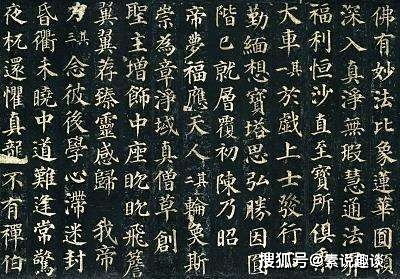 佛有妙法比象蓮華圓頓
深入真淨無瑕慧通法界
福利恒沙直至寶所俱乘
大車其一於戲上士發行正
勤緬想寶塔思弘勝因圓
階已就層覆初陳乃昭
帝夢福應天人其二輪奐斯
崇為章淨域真僧草創
聖主增飾中座眈眈飛簷
翼翼荐臻靈感歸 我帝
力其三念彼後學心滯迷封
昏衢未曉中道難逢常驚
夜杌還懼真龍不有禪伯
搜狐号@素说趣谈